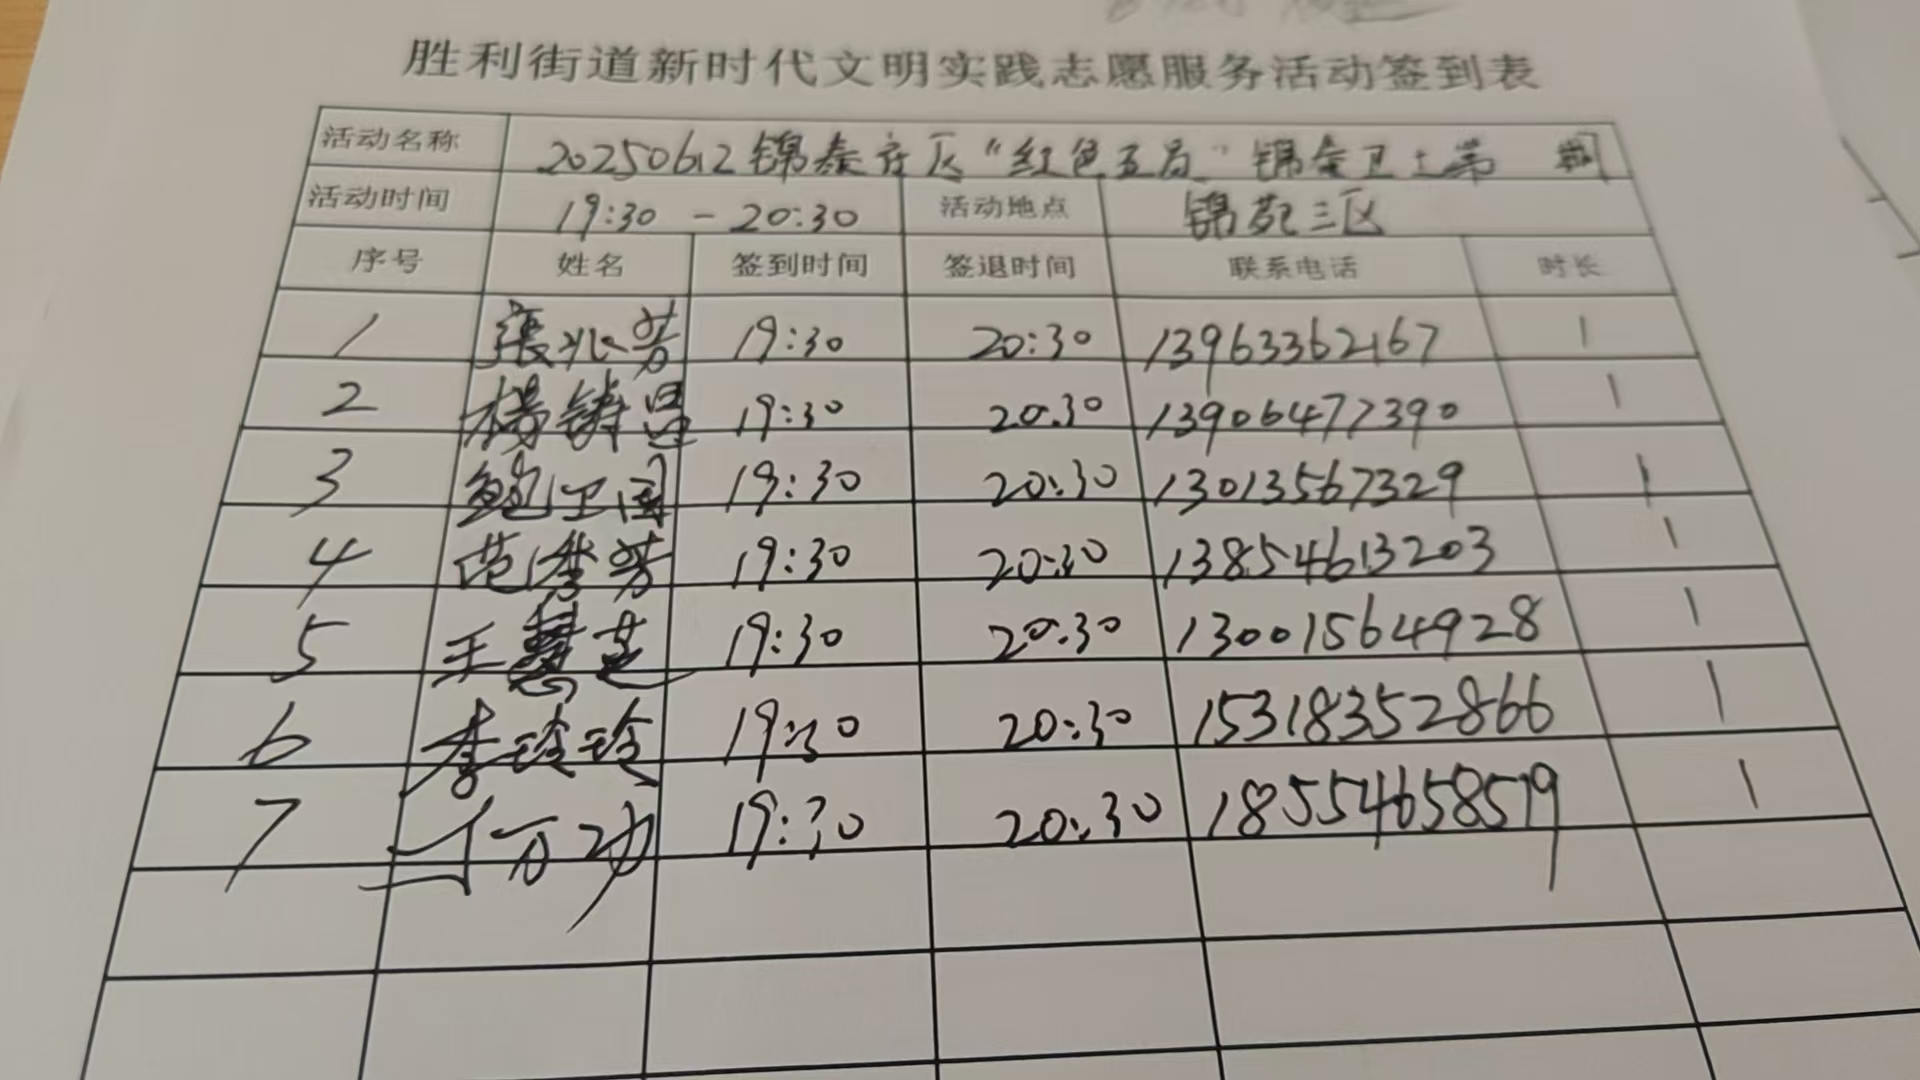 胜利街道新时代文明实践志愿服务活动签到表
活动名称 20250612锦泰社区“红色五局”锦泰卫士第 期
活动时间 19:30 - 20:30 活动地点 锦苑三区
序号 姓名 签到时间 签退时间 联系电话 时长
1 張兆芳 19:30 20:30 13963362167 1
2 楊铸昌 19:30 20:30 13906477390 1
3 鲍卫国 19:30 20:30 13013567329 1
4 范秀芳 19:30 20:30 13854613203 1
5 王慧芝 19:30 20:30 13001564928 1
6 李玲玲 19:30 20:30 15318352866 1
7 万功 19:30 20:30 18554658519 1